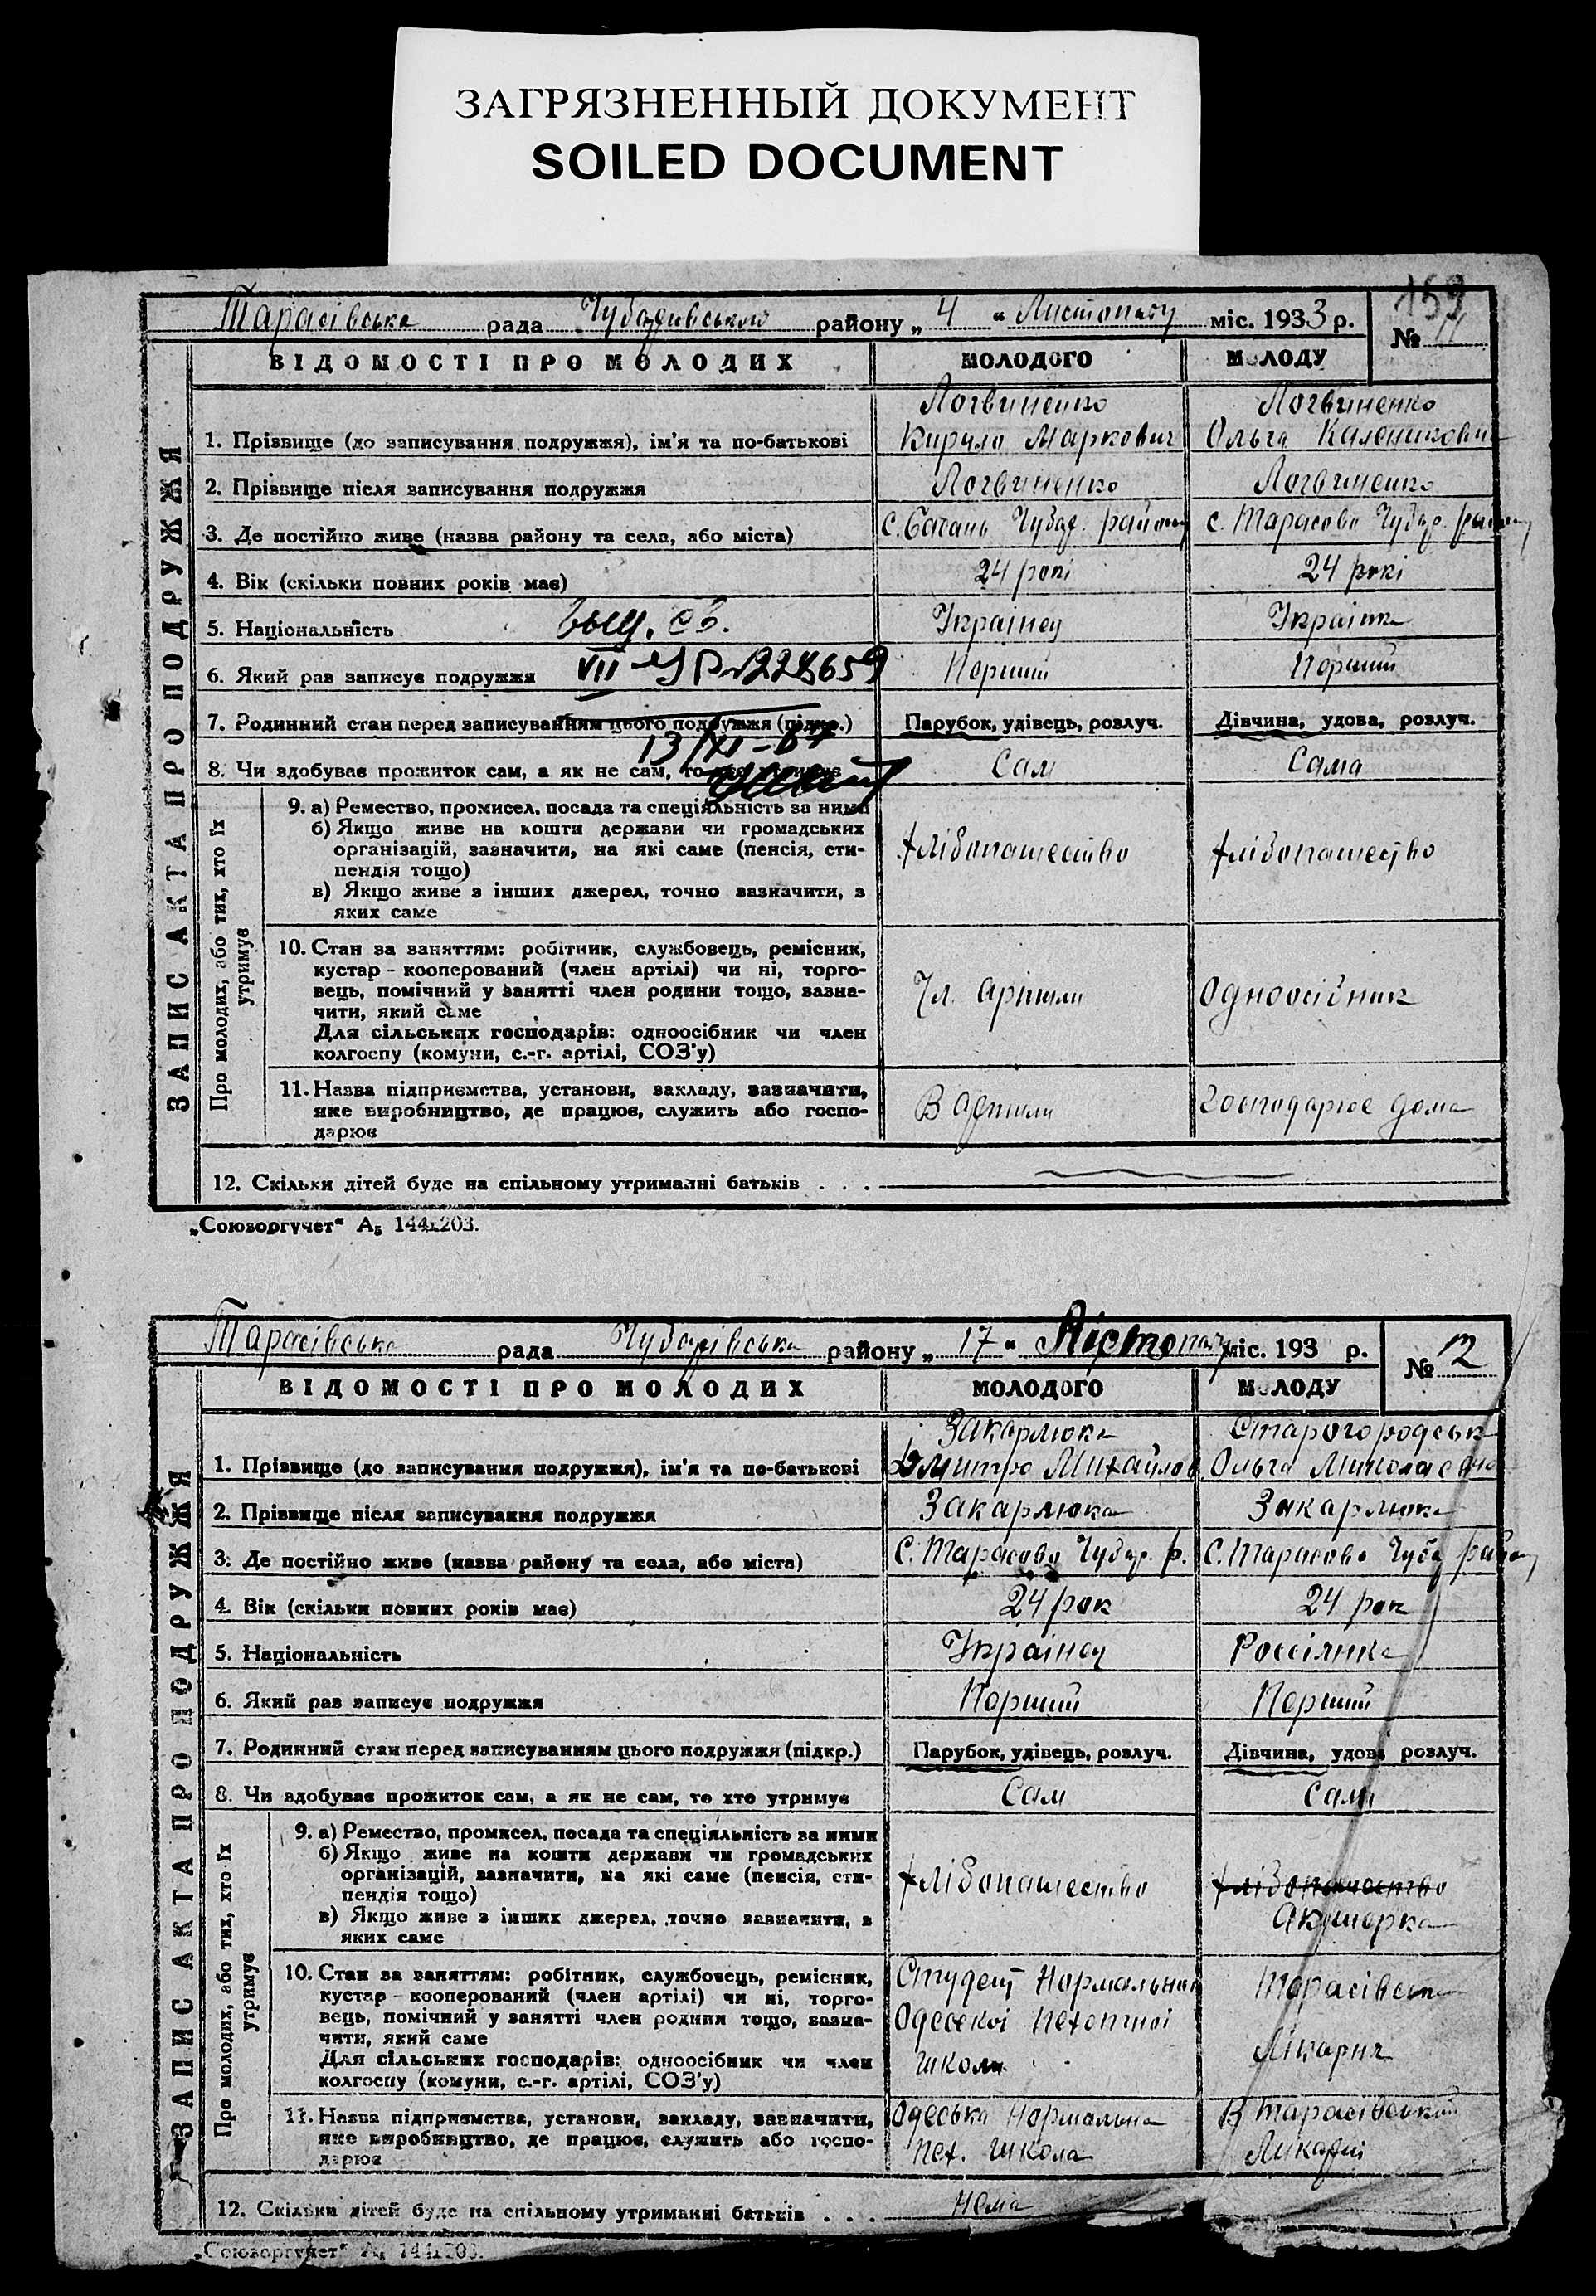 ЗАГРЯЗНЕННЫЙ ДОКУМЕНТ
SOILED DOCUMENT
159
Тарасівська рада Чубарівського району „ 4 " Листопаду міс. 1933 р.
№ 11
ЗАПИС АКТА ПРО ПОДРУЖЖЯ
ВІДОМОСТІ ПРО МОЛОДИХ МОЛОДОГО МОЛОДУ
1. Прізвище (до записування подружжя), ім'я та по-батькові Логвиненко Кирило Маркович Логвиненко Ольга Каленикови
2. Прізвище після записування подружжя Логвиненко Логвиненко
3. Де постійно живе (назва району та села, або міста) с. Басань Чубар. району с. Тарасовв Чубар. району
4. Вік (скільки повних років має) 24 рокі 24 рокі
5. Національність Українец Українка
Выщ. св.
6. Який раз записує подружжя Перший Перший
VII
7. Родинний стан перед записуванням цього подружжя (підкр.) Парубок, удівець, розлуч. Дівчина, удова, розлуч.
13/XI-67
8. Чи здобуває прожиток сам, а як не сам, то хто утримує Сам Сама
Про молодих, або тих, хто їх утримує
9. а) Ремество, промисел, посада та спеціяльність за ними
б) Якщо живе на кошти держави чи громадських
організацій, зазначити, на які саме (пенсія, сти-
пендія тощо)
в) Якщо живе з інших джерел, точно зазначити, з
яких саме
хлібопашество хлібопашество
10. Стан за заняттям: робітник, службовець, ремісник,
кустар - кооперований (член артілі) чи ні, торго-
вець, помічний у занятті член родини тощо, зазна-
чити, який саме
Для сільських господарів: одноосібник чи член
колгоспу (комуни, с.-г. артілі, СОЗ'у)
Чл. артили Одноосібник
11. Назва підприємства, установи, закладу, зазначити,
яке виробництво, де працює, служить або госпо-
дарює
В артили Господарює дома
12. Скільки дітей буде на спільному утриманні батьків . . .
„Союзоргучет" А5 144х203.
Тарасівська рада Чубарівська району „ 17 " Лістопаду міс. 193 р.
№ 12
ЗАПИС АКТА ПРО ПОДРУЖЖЯ
ВІДОМОСТІ ПРО МОЛОДИХ МОЛОДОГО МОЛОДУ
1. Прізвище (до записування подружжя), ім'я та по-батькові Закарлюка Дмитро Михайлов Старогородськ Ольга Миколаєвна
2. Прізвище після записування подружжя Закарлюка Закарлюка
3. Де постійно живе (назва району та села, або міста) С. Тарасовв Чубар. р. С. Тарасовв Чубар району
4. Вік (скільки повних років має) 24 рок 24 рок
5. Національність Українец Россіянка
6. Який раз записує подружжя Перший Перший
7. Родинний стан перед записуванням цього подружжя (підкр.) Парубок, удівець, розлуч. Дівчина, удова розлуч.
8. Чи здобуває прожиток сам, а як не сам, то хто утримує Сам Сама
Про молодих, або тих, хто їх утримує
9. а) Ремество, промисел, посада та спеціяльність за ними
б) Якщо живе на кошти держави чи громадських
організацій, зазначити, на які саме (пенсія, сти-
пендія тощо)
в) Якщо живе з інших джерел, точно зазначити, з
яких саме
хлібопашество хлібопашество
Акушорка
10. Стан за заняттям: робітник, службовець, ремісник,
кустар - кооперований (член артілі) чи ні, торго-
вець, помічний у занятті член родини тощо, зазна-
чити, який саме
Для сільських господарів: одноосібник чи член
колгоспу (комуни, с.-г. артілі, СОЗ'у)
Студент Нормальної
Одеської пехотної
школи
Тарасівська
Лікарня
11. Назва підприємства, установи, закладу, зазначити,
яке виробництво, де працює, служить або госпо-
дарює
Одеська Нормальна
пех. школа
В тарасівській
Ликарні
12. Скільки дітей буде на спільному утриманні батьків . . . нема
„Союзоргучет" А5 144х203.